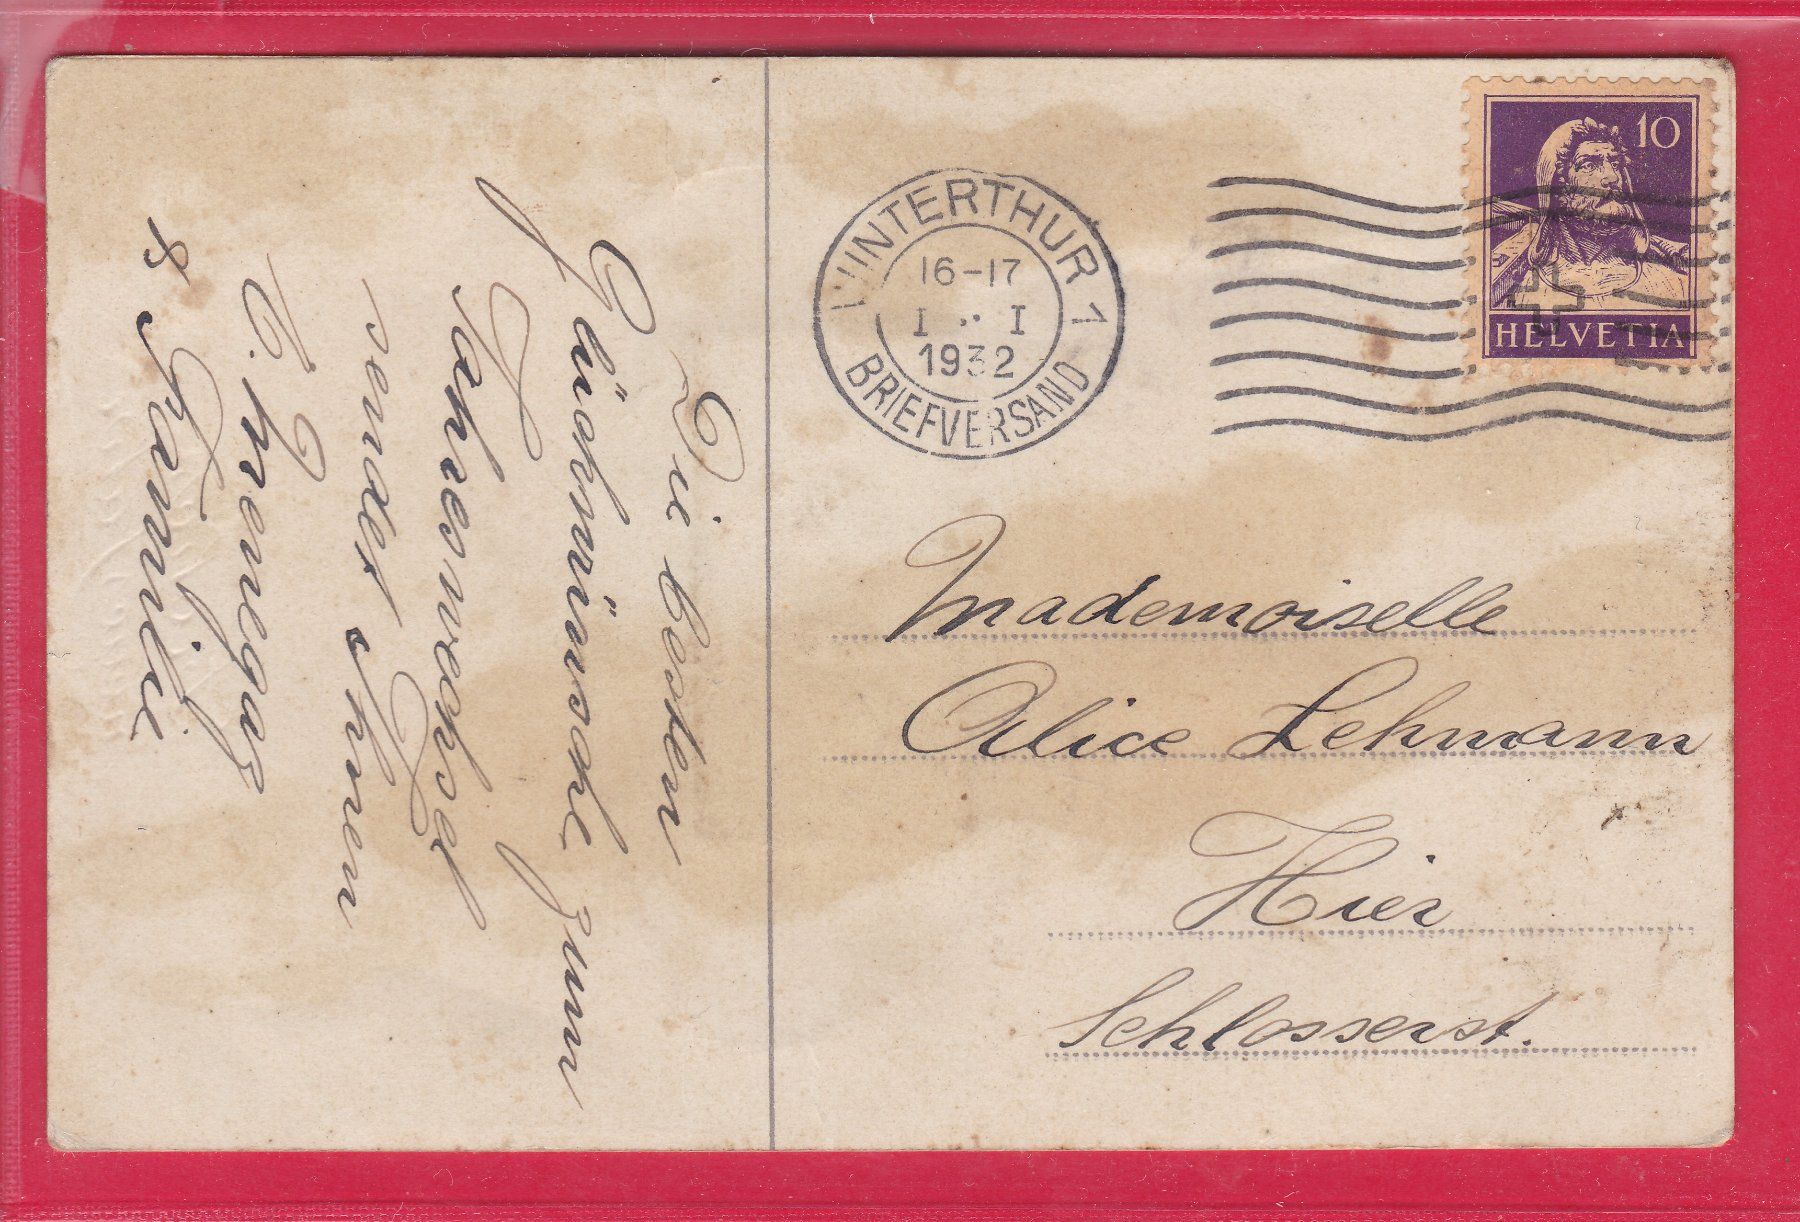 Die besten
Glückwünsche zum
Jahreswechsel
sendet Ihnen
& Familie
WINTERTHUR 1
16-17
I · I
1932
BRIEFVERSAND
10
HELVETIA
Mademoiselle
Alice Lehmann
Hier
Schlosserst.